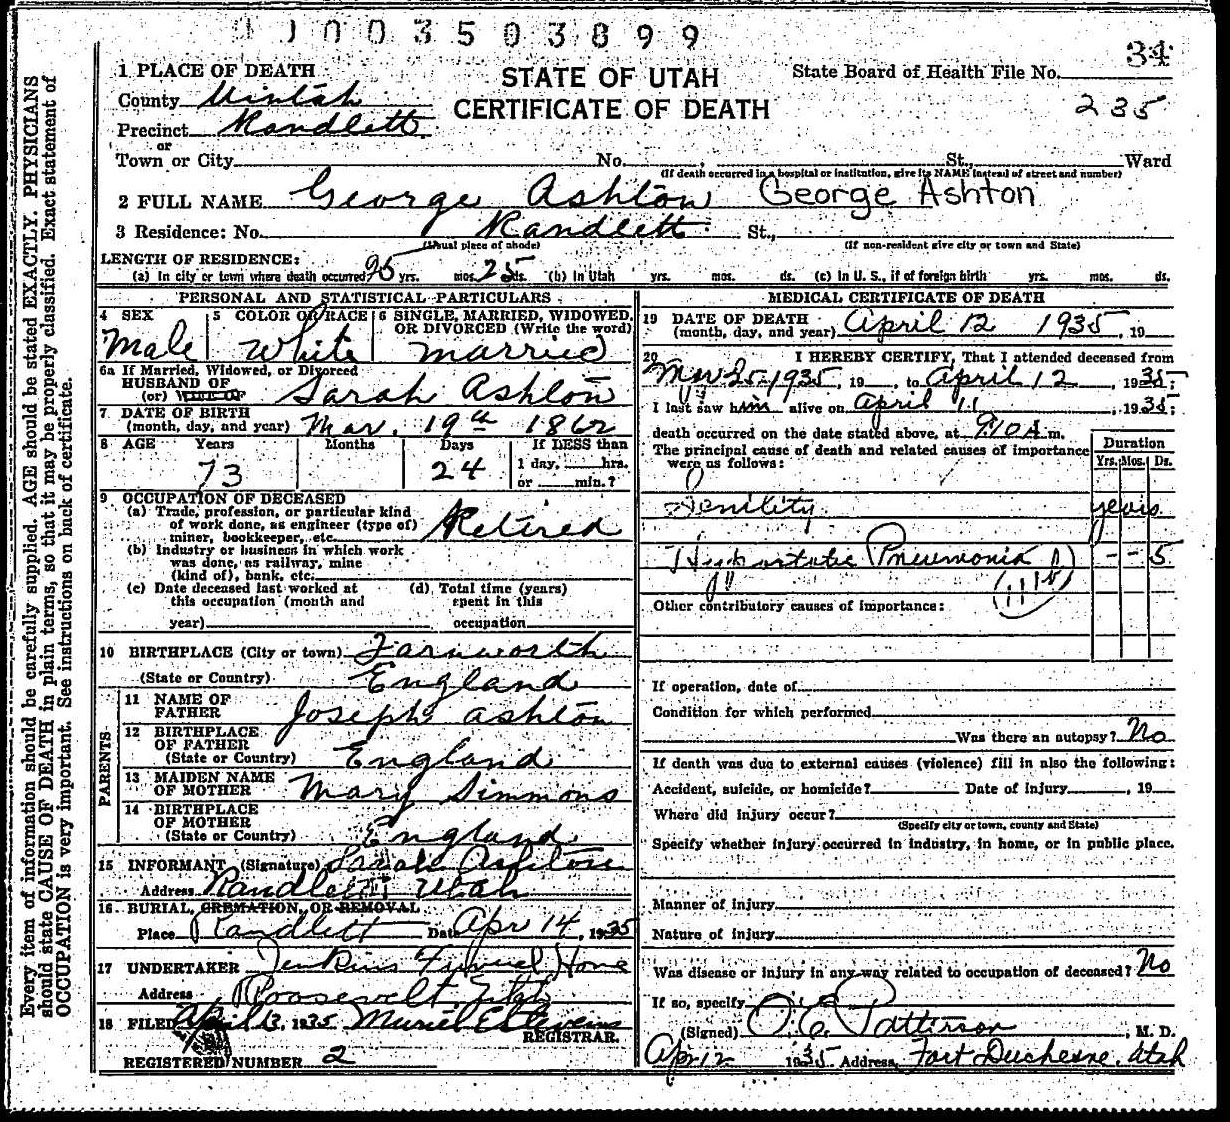 1003503899
34
1 PLACE OF DEATH
STATE OF UTAH
State Board of Health File No.
County Uintah
CERTIFICATE OF DEATH
235
Precinct Randlett
or
Town or City No. , St., Ward
(If death occurred in a hospital or institution, give its NAME instead of street and number)
2 FULL NAME George Ashton George Ashton
3 Residence: No. Randlett St.,
(Usual place of abode) (If non-resident give city or town and State)
LENGTH OF RESIDENCE:
(a) In city or town where death occurred 25 yrs. mos. 25 ds. (b) In Utah yrs. mos. ds. (c) In U. S., if of foreign birth yrs. mos. ds.
PERSONAL AND STATISTICAL PARTICULARS
4 SEX
Male
5 COLOR OR RACE
White
6 SINGLE, MARRIED, WIDOWED,
OR DIVORCED (Write the word)
married
6a If Married, Widowed, or Divorced
HUSBAND OF
(or) WIFE OF Sarah Ashton
7 DATE OF BIRTH
(month, day, and year) Mar. 19th 1862
8 AGE Years Months Days If LESS than
73 24 1 day, hrs.
or min.?
9 OCCUPATION OF DECEASED
(a) Trade, profession, or particular kind
of work done, as engineer (type of)
miner, bookkeeper, etc. Retired
(b) Industry or business in which work
was done, as railway, mine
(kind of), bank, etc.
(c) Date deceased last worked at
this occupation (month and
year)
(d) Total time (years)
spent in this
occupation
10 BIRTHPLACE (City or town) Farnworth
(State or Country) England
PARENTS
11 NAME OF
FATHER Joseph Ashton
12 BIRTHPLACE
OF FATHER
(State or Country) England
13 MAIDEN NAME
OF MOTHER Mary Simmons
14 BIRTHPLACE
OF MOTHER
(State or Country) England
15 INFORMANT (Signature) Sarah Ashton
Address Randlett Utah
16 BURIAL, CREMATION, OR REMOVAL
Place Randlett Date Apr 14, 1935
17 UNDERTAKER Jenkins Funeral Home
Address Roosevelt, Utah
18 FILED April 13, 1935 Muriel E Stevens
REGISTRAR.
REGISTERED NUMBER 2
MEDICAL CERTIFICATE OF DEATH
19 DATE OF DEATH
(month, day, and year) April 12 1935, 19
20 I HEREBY CERTIFY, That I attended deceased from
Mar 25 1935, 19 , to April 12, 1935;
I last saw him alive on April 11, 1935;
death occurred on the date stated above, at 910 A m.
The principal cause of death and related causes of importance
were as follows:
Duration
Yrs. Mos. Ds.
Senility years
Hypostatic Pneumonia - - 5
Other contributory causes of importance:
If operation, date of
Condition for which performed
Was there an autopsy? No
If death was due to external causes (violence) fill in also the following:
Accident, suicide, or homicide? Date of injury , 19
Where did injury occur?
(Specify city or town, county and State)
Specify whether injury occurred in industry, in home, or in public place.
Manner of injury
Nature of injury
Was disease or injury in any way related to occupation of deceased? No
If so, specify
(Signed) O. E. Patterson, M. D.
Apr 12 1935 Address, Fort Duchesne, Utah
Every item of information should be carefully supplied. AGE should be stated EXACTLY. PHYSICIANS
should state CAUSE OF DEATH in plain terms, so that it may be properly classified. Exact statement of
OCCUPATION is very important. See instructions on back of certificate.